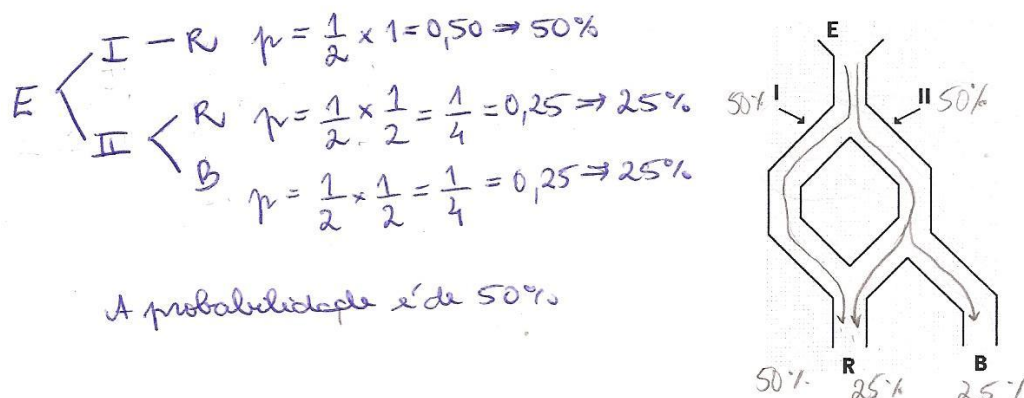 I — R p = 1/2 × 1 = 0,50 ⇒ 50%
E
II R p = 1/2 × 1/2 = 1/4 = 0,25 ⇒ 25%
B p = 1/2 × 1/2 = 1/4 = 0,25 ⇒ 25%
A probabilidade é de 50%
E
50% I II 50%
R B
50% 25% 25%